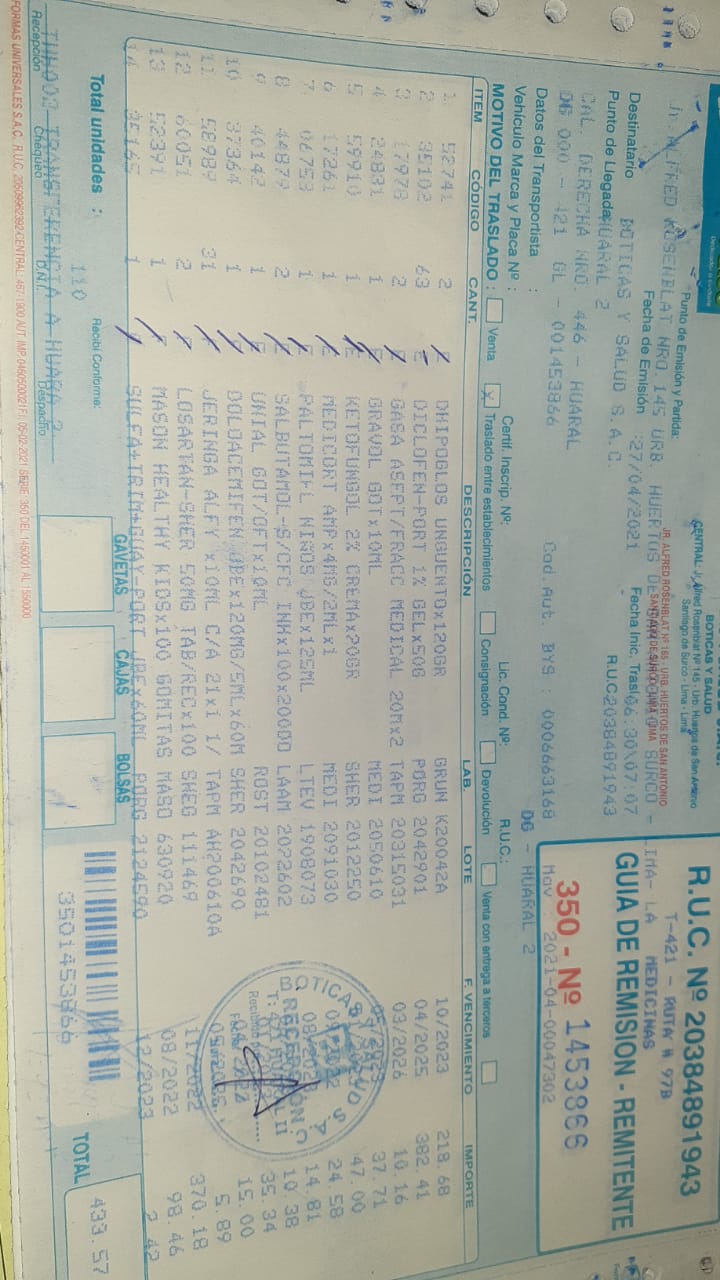 R.U.C. Nº 20384891943
T-421 - RUTA # 97B
MEDICINAS
GUIA DE REMISION - REMITENTE
350 - Nº 1453866
Mov : 2021-04-00047302
BOTICAS Y SALUD
CENTRAL: Jr. Alfred Rosenblat Nº 145 - Urb. Huertos de San Antonio
Santiago de Surco - Lima - Lima
JR. ALFRED ROSENBLAT Nº 165 - URB. HUERTOS DE SAN ANTONIO
SANTIAGO DE SURCO - LIMA - LIMA
Punto de Emisión y Partida:
Jr. ALFRED ROSENBLAT NRO 145 URB. HUERTOS DE SURCO - LIMA- LA
Fecha de Emisión :27/04/2021 Fecha Inic. Trasl 06:30\07:07
Destinatario BOTICAS Y SALUD S.A.C. R.U.C 20384891943
Punto de Llegada HUARAL 2
CAL. DERECHA NRO. 446 - HUARAL
DG 000 - 421 GL - 001453866 Cod.Aut. BYS : 0006663168 DG - HUARAL 2
Datos del Transportista :
R.U.C.:
Vehiculo Marca y Placa Nº : Certif. Inscrip. Nº: Lic. Cond. Nº:
MOTIVO DEL TRASLADO : Venta X Traslado entre establecimientos Consignación Devolución Venta con entrega a terceros
ITEM CÓDIGO CANT. DESCRIPCIÓN LAB. LOTE F. VENCIMIENTO IMPORTE
1 52741 2 DHIPOGLOS UNGUENTOx120GR GRUN K20042A 10/2023 218.68
2 35102 63 DICLOFEN-PORT 1% GELx50G PORG 2042901 04/2025 382.41
3 17978 2 GASA ASEPT/FRACC MEDICAL 20Mx2 TAPM 20315031 03/2026 10.16
4 24831 1 GRAVOL GOTx10ML MEDI 2050610 37.71
5 59910 1 KETOFUNGOL 2% CREMAx20GR SHER 2012250 47.00
6 17261 1 MEDICORT AMPx4MG/2MLx1 MEDI 2091030 24.58
7 06753 1 PALTOMIEL NIÑOS JBEx125ML LTEV 1908073 14.81
8 44879 2 SALBUTAMOL-S/CFC INHx100x200DO LAAM 2022602 10.38
9 40142 1 UNIAL GOT/OFTx10ML ROST 20102481 35.34
10 37364 1 DOLOALEMIFEN JBEx120MG/5MLx60M SHER 2042690 15.00
11 58989 31 JERINGA ALFY x10ML C/A 21x1 1/ TAPM AH200610A 5.89
12 60051 2 LOSARTAN-SHER 50MG TAB/RECx100 SHEG 111469 11/2022 370.18
13 52391 1 MASON HEALTHY KIDSx100 GOMITAS MASO 630920 08/2022 98.46
14 05165 1 SULFA+TRIM+GUAY-PORT JBEx60ML PORG 2124590 12/2023 2.42
BOTICAS Y SALUD S.A.
RECEPCIÓN
Recibido por
Total unidades : 110 Recibí Conforme:
GAVETAS CAJAS BOLSAS
3501453866
TOTAL 433.57
TIIN002 TRANSFERENCIA A HUARA 2
Recepción Chequeo D.N.I. Despacho
FORMAS UNIVERSALES S.A.C. R.U.C. 20509982392 CENTRAL: 467-1900 AUT. IMP. 0460500021 F.I. 05-02-2021 SERIE: 350 DEL 1450001 AL 1550000